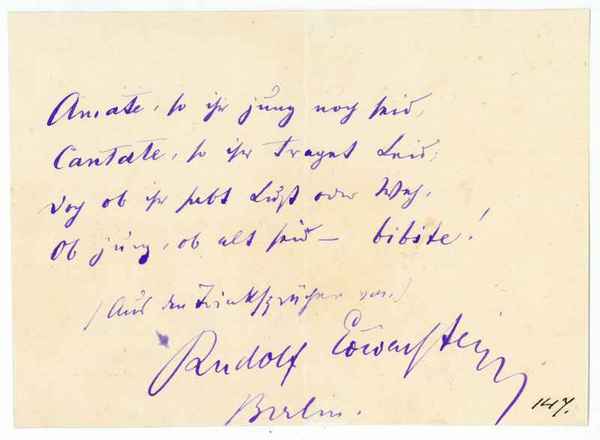 Amate, so ihr jung noch seid,
Cantate, so ihr traget Leid;
Doch ob ihr habt Lust oder Weh,
Ob jung, ob alt seid — bibite!
(Aus den Trinksprüchen von)
Rudolf Löwenstein
Berlin.
147.